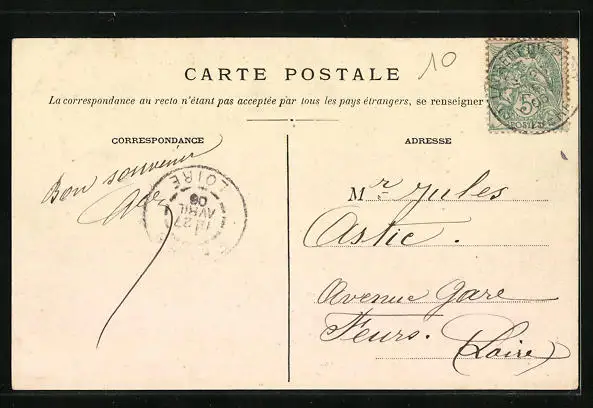 10
CARTE POSTALE
La correspondance au recto n'étant pas acceptée par tous les pays étrangers, se renseigner
CORRESPONDANCE
ADRESSE
Bon souvenir
Mr Jules
Astic.
Avenue Gare
Feurs. (Loire)
LOIRE
27
AVRIL
06
5
POSTES